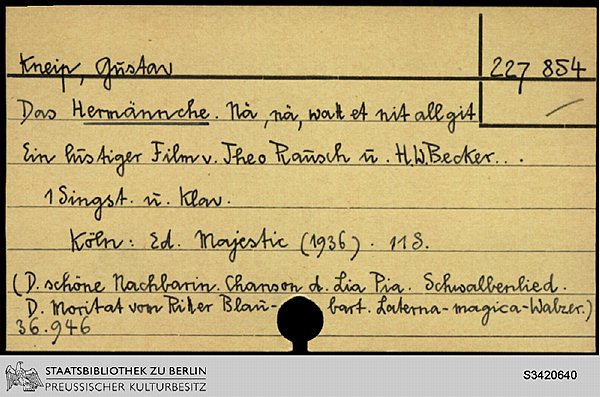 Kneip, Gustav
227 854
Das Hermännche. Nä, nä, watt et nit all git
Ein lustiger Film v. Theo Rausch u. H.W.Becker...
1 Singst. u. Klav.
Köln: Ed. Majestic (1936). 11 S.
(D. schöne Nachbarin. Chanson d. Lia Pia. Schwalbenlied.
D. Moritat vom Ritter Blau- bart. Laterna-magica-Walzer.)
36.946
STAATSBIBLIOTHEK ZU BERLIN
PREUSSISCHER KULTURBESITZ
S3420640